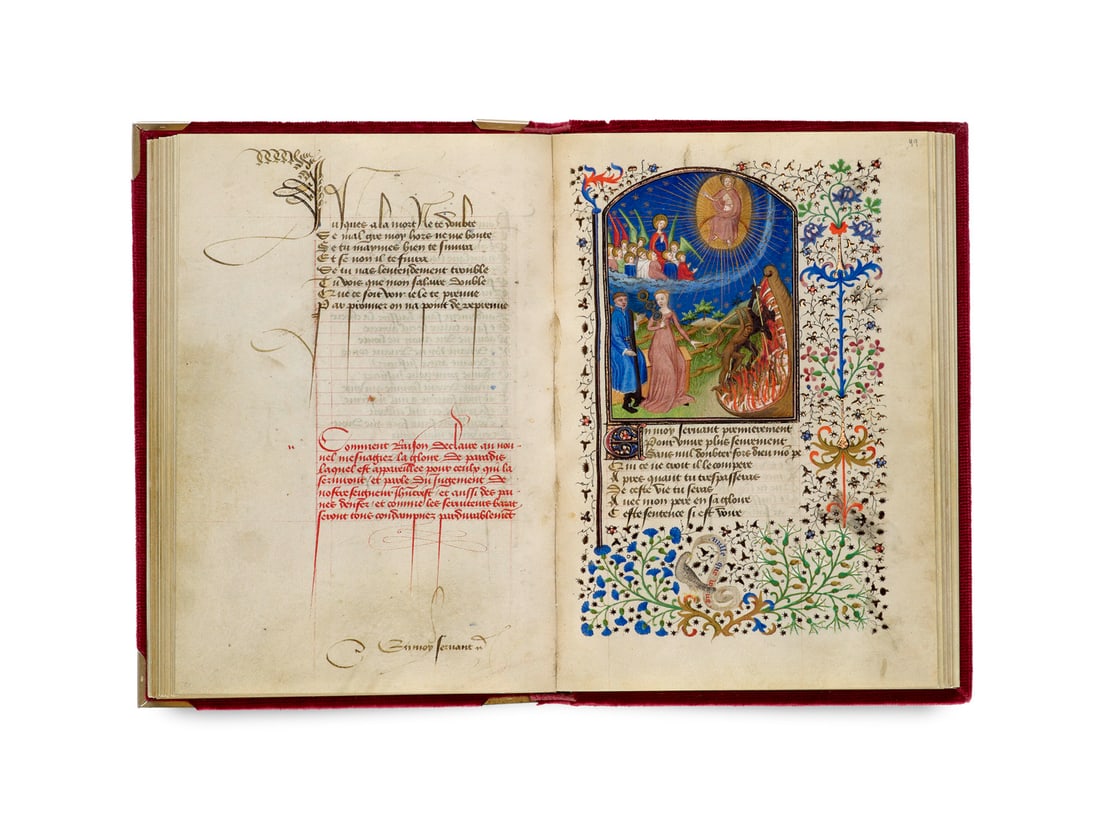 Jusques a la mort Ne te doubte
Se mal gre moy hors ne me boute
Se tu maymes bien te suivra
Et se non il te fuira
Se tu nas lentendement trouble
Tu vois que mon salaire double
Et que ce soit voir ie le te preuve
Par prouver on na point de repreuve
Comment Raison declaire au nou
vel mesnagier la gloire de paradis
laquel est appareillee pour ceulx qui la
serviront / et parle du jugement de
nostre seigneur / et aussi des pai
nes denfer / et comme les serviteurs barat
seront tous condampnez pardurablement
En moy servant
99
En moy servant premierement
Pour vivre plus seurement
Sans nul doubter fors dieu no pe
Qui ce ne croit il le compere
Apres quant tu trespasseras
De ceste vie tu seras
Avec mon pere en sa gloire
Ceste sentence si est voire